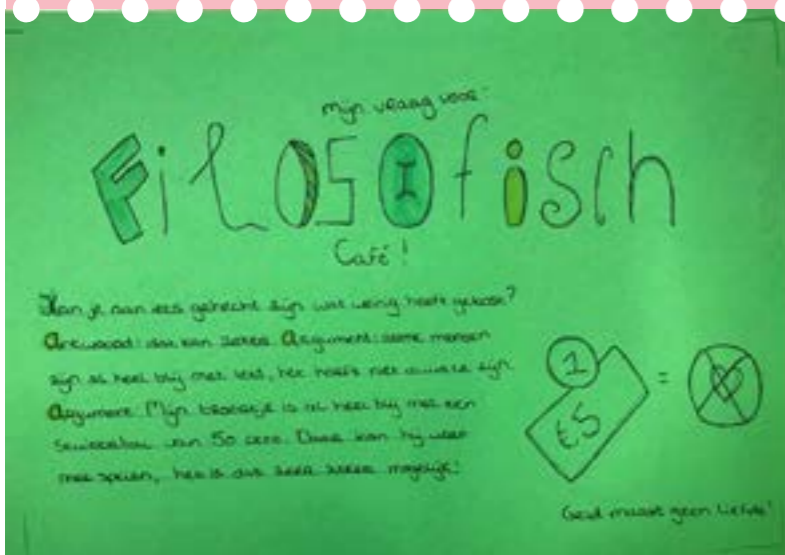 Mijn vraag voor:
Filosofisch
Café!
Kan je aan iets gehecht zijn wat weinig heeft gekost?
Antwoord: dat kan zeker. Argument: some mensen
zijn al heel blij met iets, het hoeft niet duur te zijn
Argument: Mijn broertje is al heel blij met een
van 50 cent. Daar kan hij weer
mee spelen, het is dus zeer zeker mogelijk!
1
€5
=
Geld maakt geen liefde!